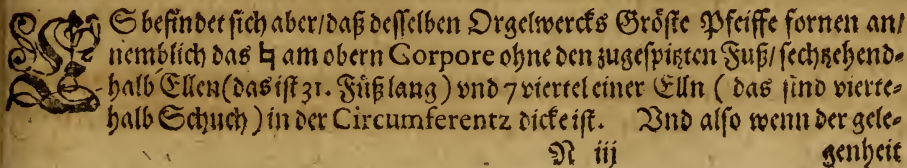 ES befindet sich aber/daß desselben Orgelwercks Gröste Pfeiffe fornen an/
nemblich das ♮ am obern Corpore ohne den zugespitzten Fuß/sechzehend-
halb Ellen(das ist 31. Füß lang) vnd 7 viertel einer Elln ( das sind vierte-
halb Schuch) in der Circumferentz dicke ist. Vnd also wenn der gele-
N iij genheit